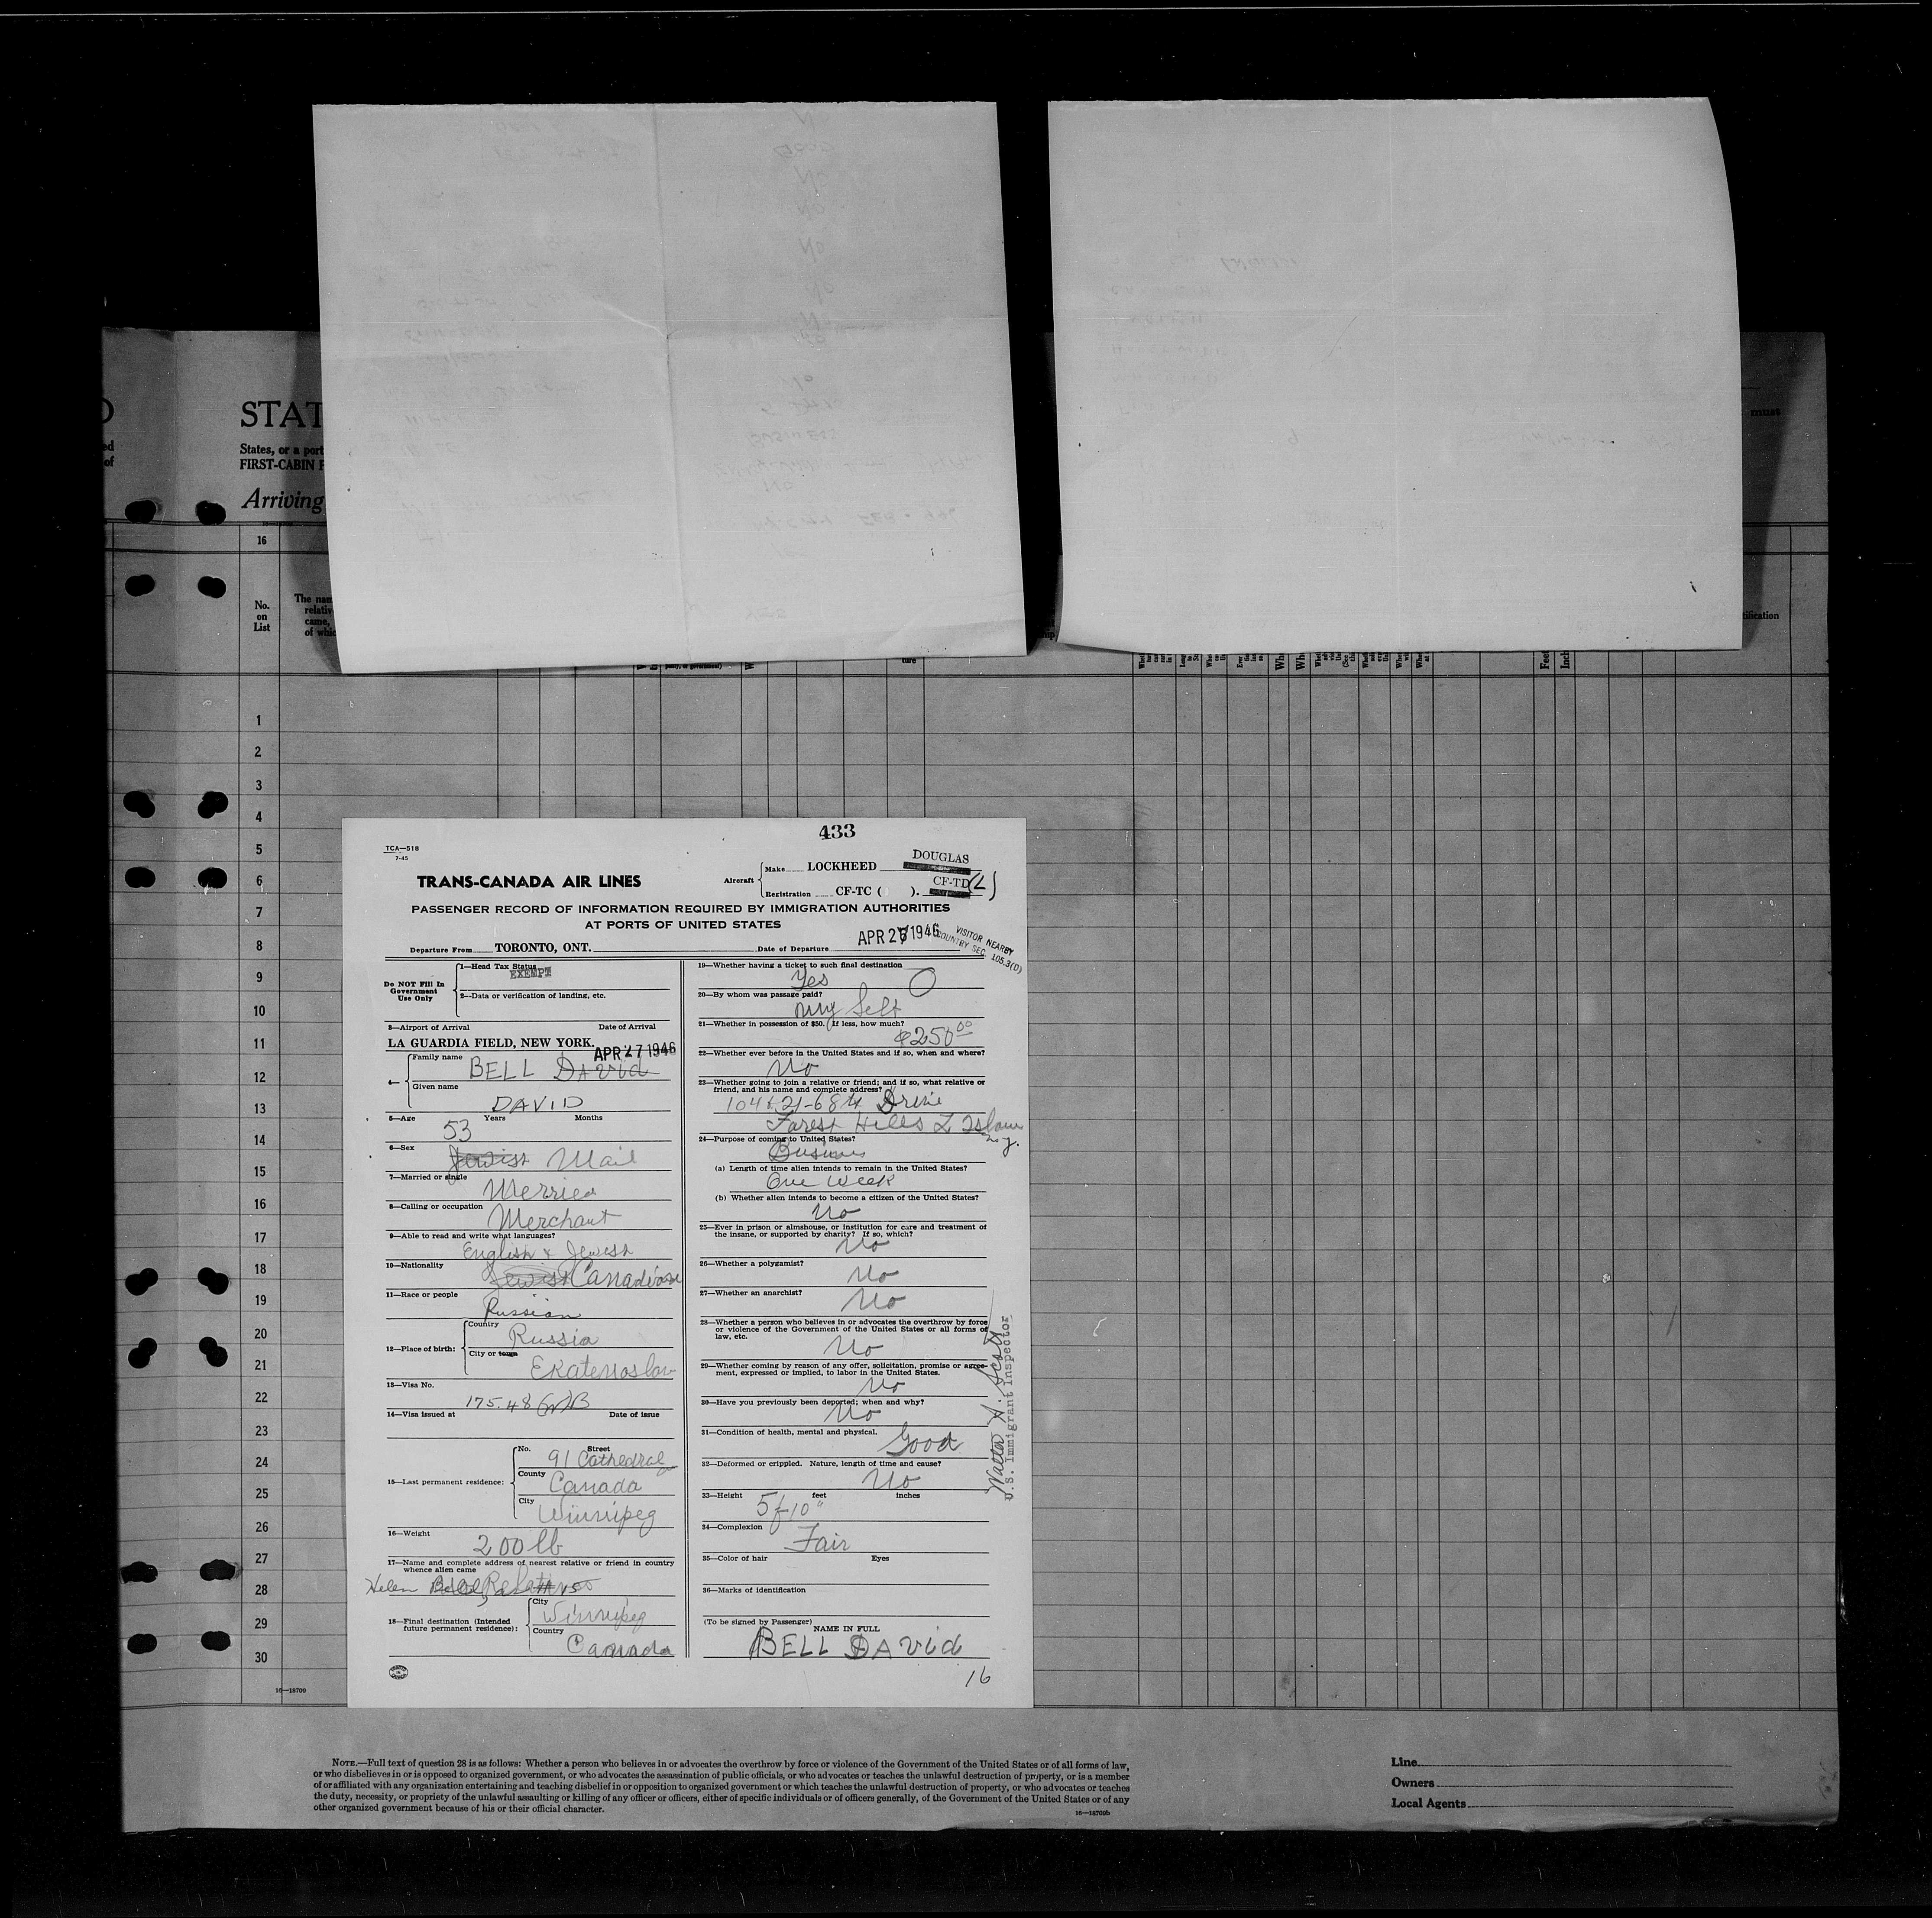 STAT
States, or a port
FIRST-CABIN
Arriving
must
16
No.
on
List
The nam
relativ
came,
of whic
tification
ture
Feet
Inch
1
2
3
4
5
6
7
8
9
10
11
12
13
14
15
16
17
18
19
20
21
22
23
24
25
26
27
28
29
30
16—18709
433
TCA—518
7-45
TRANS-CANADA AIR LINES
Aircraft
Make LOCKHEED DOUGLAS
Registration CF-TC ( ). CF-TD (L)
PASSENGER RECORD OF INFORMATION REQUIRED BY IMMIGRATION AUTHORITIES
AT PORTS OF UNITED STATES
Departure From TORONTO, ONT. Date of Departure APR 27 1946
VISITOR NEARBY
COUNTRY SEC. 105.3(D)
Do NOT Fill In
Government
Use Only
1—Head Tax Status
EXEMPT
2—Data or verification of landing, etc.
3—Airport of Arrival Date of Arrival
LA GUARDIA FIELD, NEW YORK. APR 27 1946
4—
Family name BELL David
Given name
DAVID
5—Age Years Months
53
6—Sex
Jewish Mail
7—Married or single
Merried
8—Calling or occupation
Merchant
9—Able to read and write what languages?
English & Jewish
10—Nationality
Jewish Canadian
11—Race or people
Russian
12—Place of birth:
Country
Russia
City or town
Ekaternoslav
13—Visa No.
175.48
14—Visa issued at Date of issue
15—Last permanent residence:
No. Street
91 Cathedral
County
Canada
City
Winnipeg
16—Weight
200 lb
17—Name and complete address of nearest relative or friend in country
whence alien came
Helen Bell
18—Final destination (Intended
future permanent residence):
City
Winnipeg
Country
Canada
19—Whether having a ticket to such final destination
Yes O
20—By whom was passage paid?
my Self
21—Whether in possession of $50. If less, how much?
$250.00
22—Whether ever before in the United States and if so, when and where?
No
23—Whether going to join a relative or friend; and if so, what relative or
friend, and his name and complete address?
104 21-68th Drive
Forest Hills L Island
N.Y.
24—Purpose of coming to United States?
Business
(a) Length of time alien intends to remain in the United States?
One Week
(b) Whether alien intends to become a citizen of the United States?
No
25—Ever in prison or almshouse, or institution for care and treatment of
the insane, or supported by charity? If so, which?
No
26—Whether a polygamist?
No
27—Whether an anarchist?
No
28—Whether a person who believes in or advocates the overthrow by force
or violence of the Government of the United States or all forms of
law, etc.
No
29—Whether coming by reason of any offer, solicitation, promise or agree-
ment, expressed or implied, to labor in the United States.
No
30—Have you previously been deported; when and why?
No
31—Condition of health, mental and physical.
Good
32—Deformed or crippled. Nature, length of time and cause?
No
33—Height feet inches
5f-10"
34—Complexion
Fair
35—Color of hair Eyes
36—Marks of identification
(To be signed by Passenger)
NAME IN FULL
BELL David
16
Walter A. Scott
U.S. Immigrant Inspector
NOTE.—Full text of question 28 is as follows: Whether a person who believes in or advocates the overthrow by force or violence of the Government of the United States or of all forms of law,
or who disbelieves in or is opposed to organized government, or who advocates the assassination of public officials, or who advocates or teaches the unlawful destruction of property, or is a member
of or affiliated with any organization entertaining and teaching disbelief in or opposition to organized government or which teaches the unlawful destruction of property, or who advocates or teaches
the duty, necessity, or propriety of the unlawful assaulting or killing of any officer or officers, either of specific individuals or of officers generally, of the Government of the United States or of any
other organized government because of his or their official character.
16—18709b
Line
Owners
Local Agents